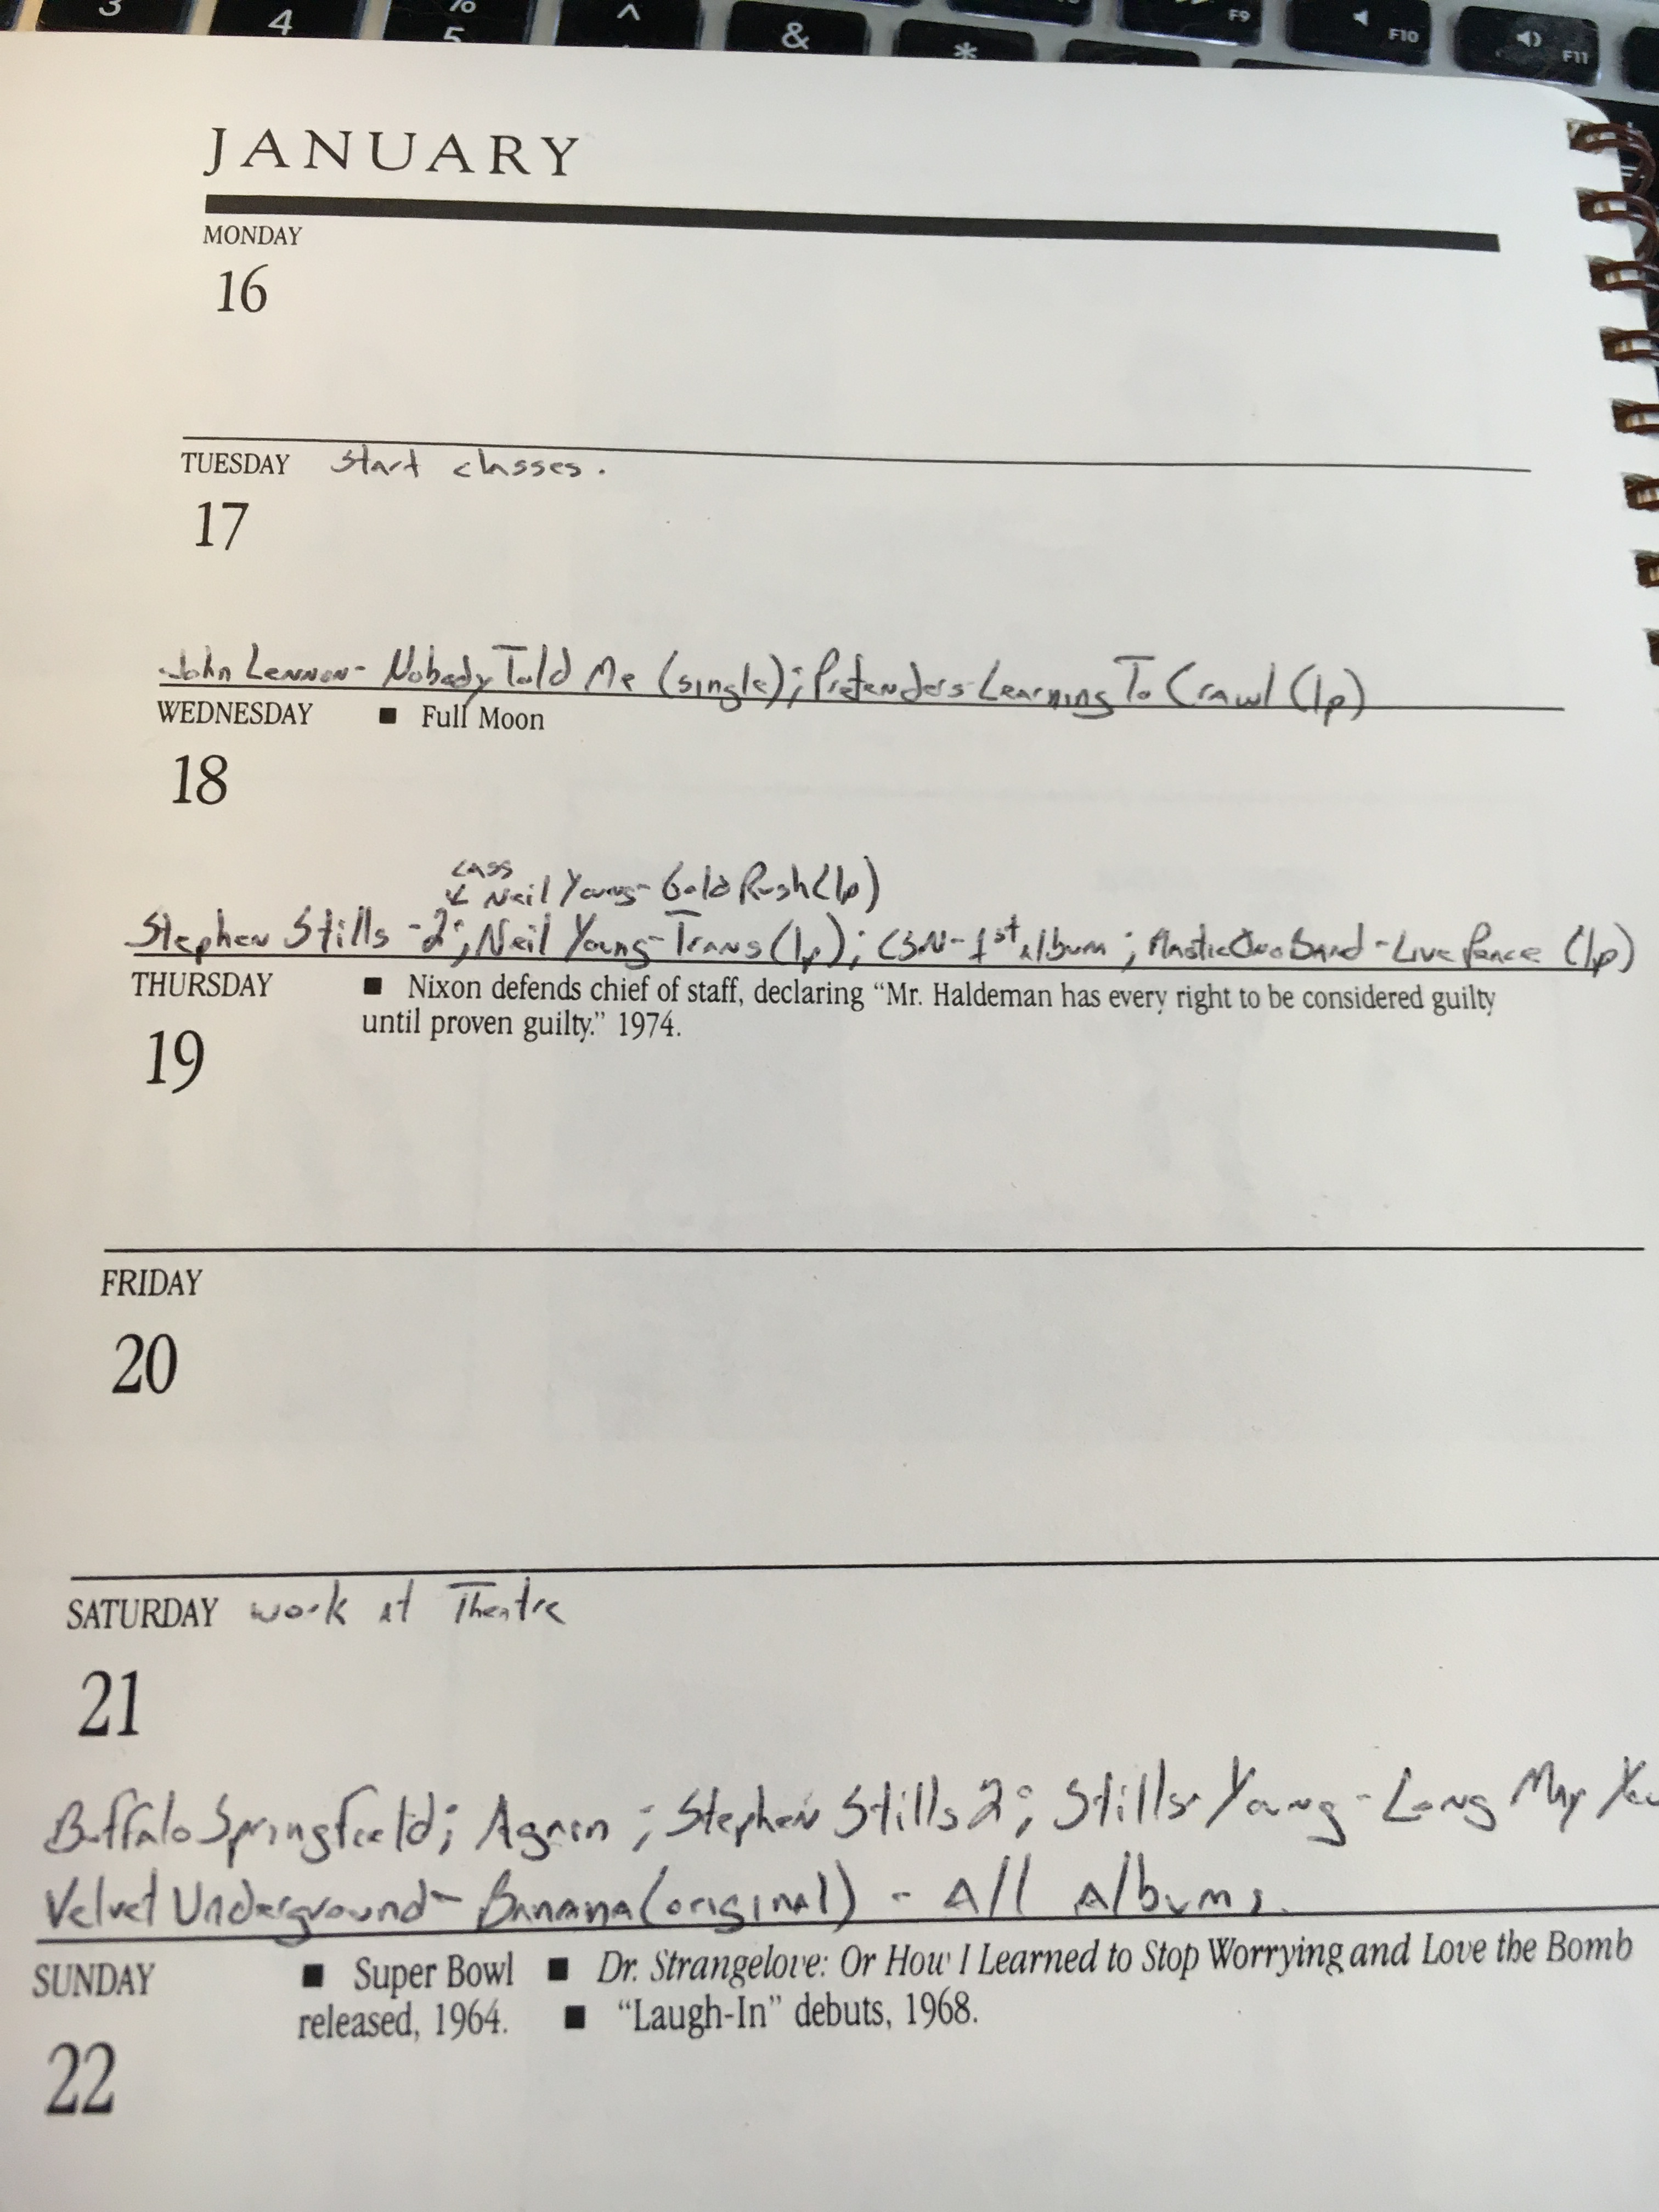 3 4 % 5 ^ & * F9 F10 F11
JANUARY
MONDAY
16
TUESDAY start classes.
17
John Lennon- Nobody Told Me (single); Pretenders-Learning To Crawl (lp)
WEDNESDAY ■ Full Moon
18
cass
Neil Young- Gold Rush (lp)
Stephen Stills -2; Neil Young-Trans (lp); CSN-1st album; Plastic Ono Band-Live Peace (lp)
THURSDAY ■ Nixon defends chief of staff, declaring “Mr. Haldeman has every right to be considered guilty
until proven guilty.” 1974.
19
FRIDAY
20
SATURDAY work at Theatre
21
Buffalo Springfield; Again; Stephen Stills 2; Stills-Young-Long May You
Velvet Underground- Banana (original) - All Albums.
SUNDAY ■ Super Bowl ■ Dr. Strangelove: Or How I Learned to Stop Worrying and Love the Bomb
released, 1964. ■ “Laugh-In” debuts, 1968.
22